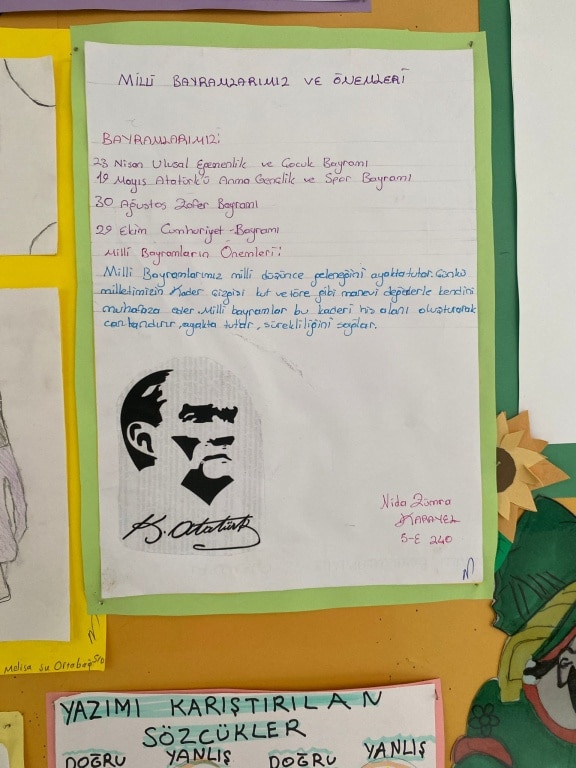 MİLLİ BAYRAMLARIMIZ VE ÖNEMLERİ
BAYRAMLARIMIZ:
23 Nisan Ulusal Egemenlik ve Çocuk Bayramı
19 Mayıs Atatürk'ü Anma Gençlik ve Spor Bayramı
30 Ağustos Zafer Bayramı
29 Ekim Cumhuriyet Bayramı
Milli Bayramların Önemleri:
Milli Bayramlarımız milli düşünce geleneğini ayakta tutar. Çünkü
milletimizin kader çizgisi kut ve töre gibi manevi değerlerle kendini
muhafaza eder. Milli bayramlar bu kaderi his alanı oluşturarak
canlandırır, ayakta tutar, sürekliliğini sağlar.
K. Atatürk
Nida Zümra
KARAYEL
5-E 240
Melisa Su Ortabağ 5/D
YAZIMI KARIŞTIRILAN
SÖZCÜKLER
DOĞRU YANLIŞ DOĞRU YANLIŞ